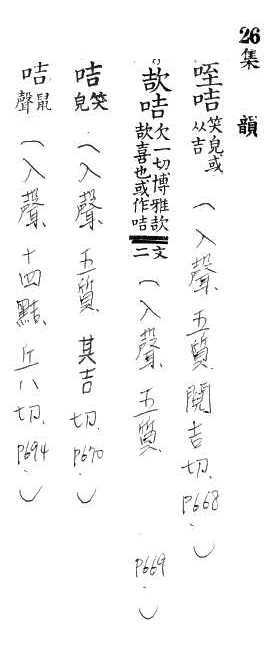 26集韻
咥咭 笑皃或从吉（入聲 五質 閱吉切.P668.）
欯咭 欠一切博雅欯欯喜也或作咭 文二（入聲 五質 P669.）
咭 笑皃（入聲 五質 其吉切.P670.）
咭 鼠聲（入聲 十四黠 丘八切.P694.）